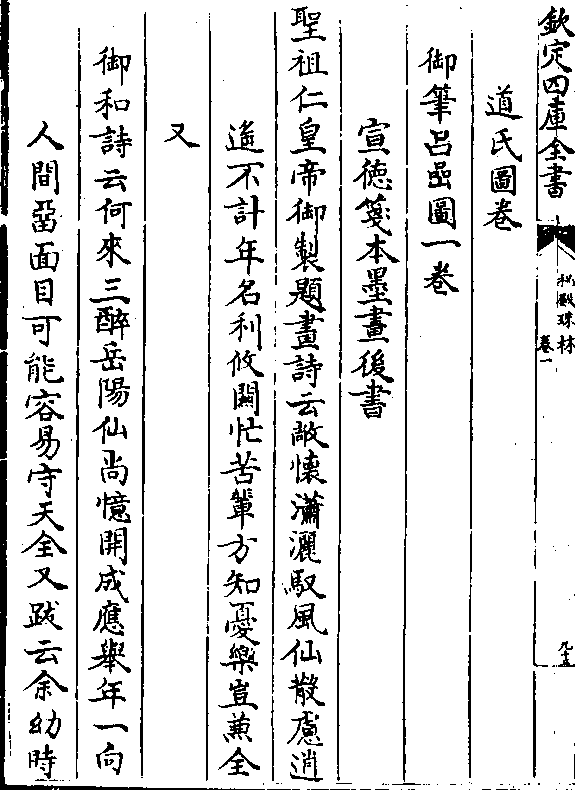 欽定四庫全書
秘殿珠林
卷一
九十五
道氏圖卷
御筆呂嵒圖一卷
宣德箋本墨畫後書
聖祖仁皇帝御製題畫詩云敞懷瀟灑馭風仙散慮逍
遙不計年名利攸關忙苦輩方知憂樂豈兼全
又
御和詩云何來三醉岳陽仙尚憶開成應舉年一向
人間留面目可能容易守天全又跋云余幼時